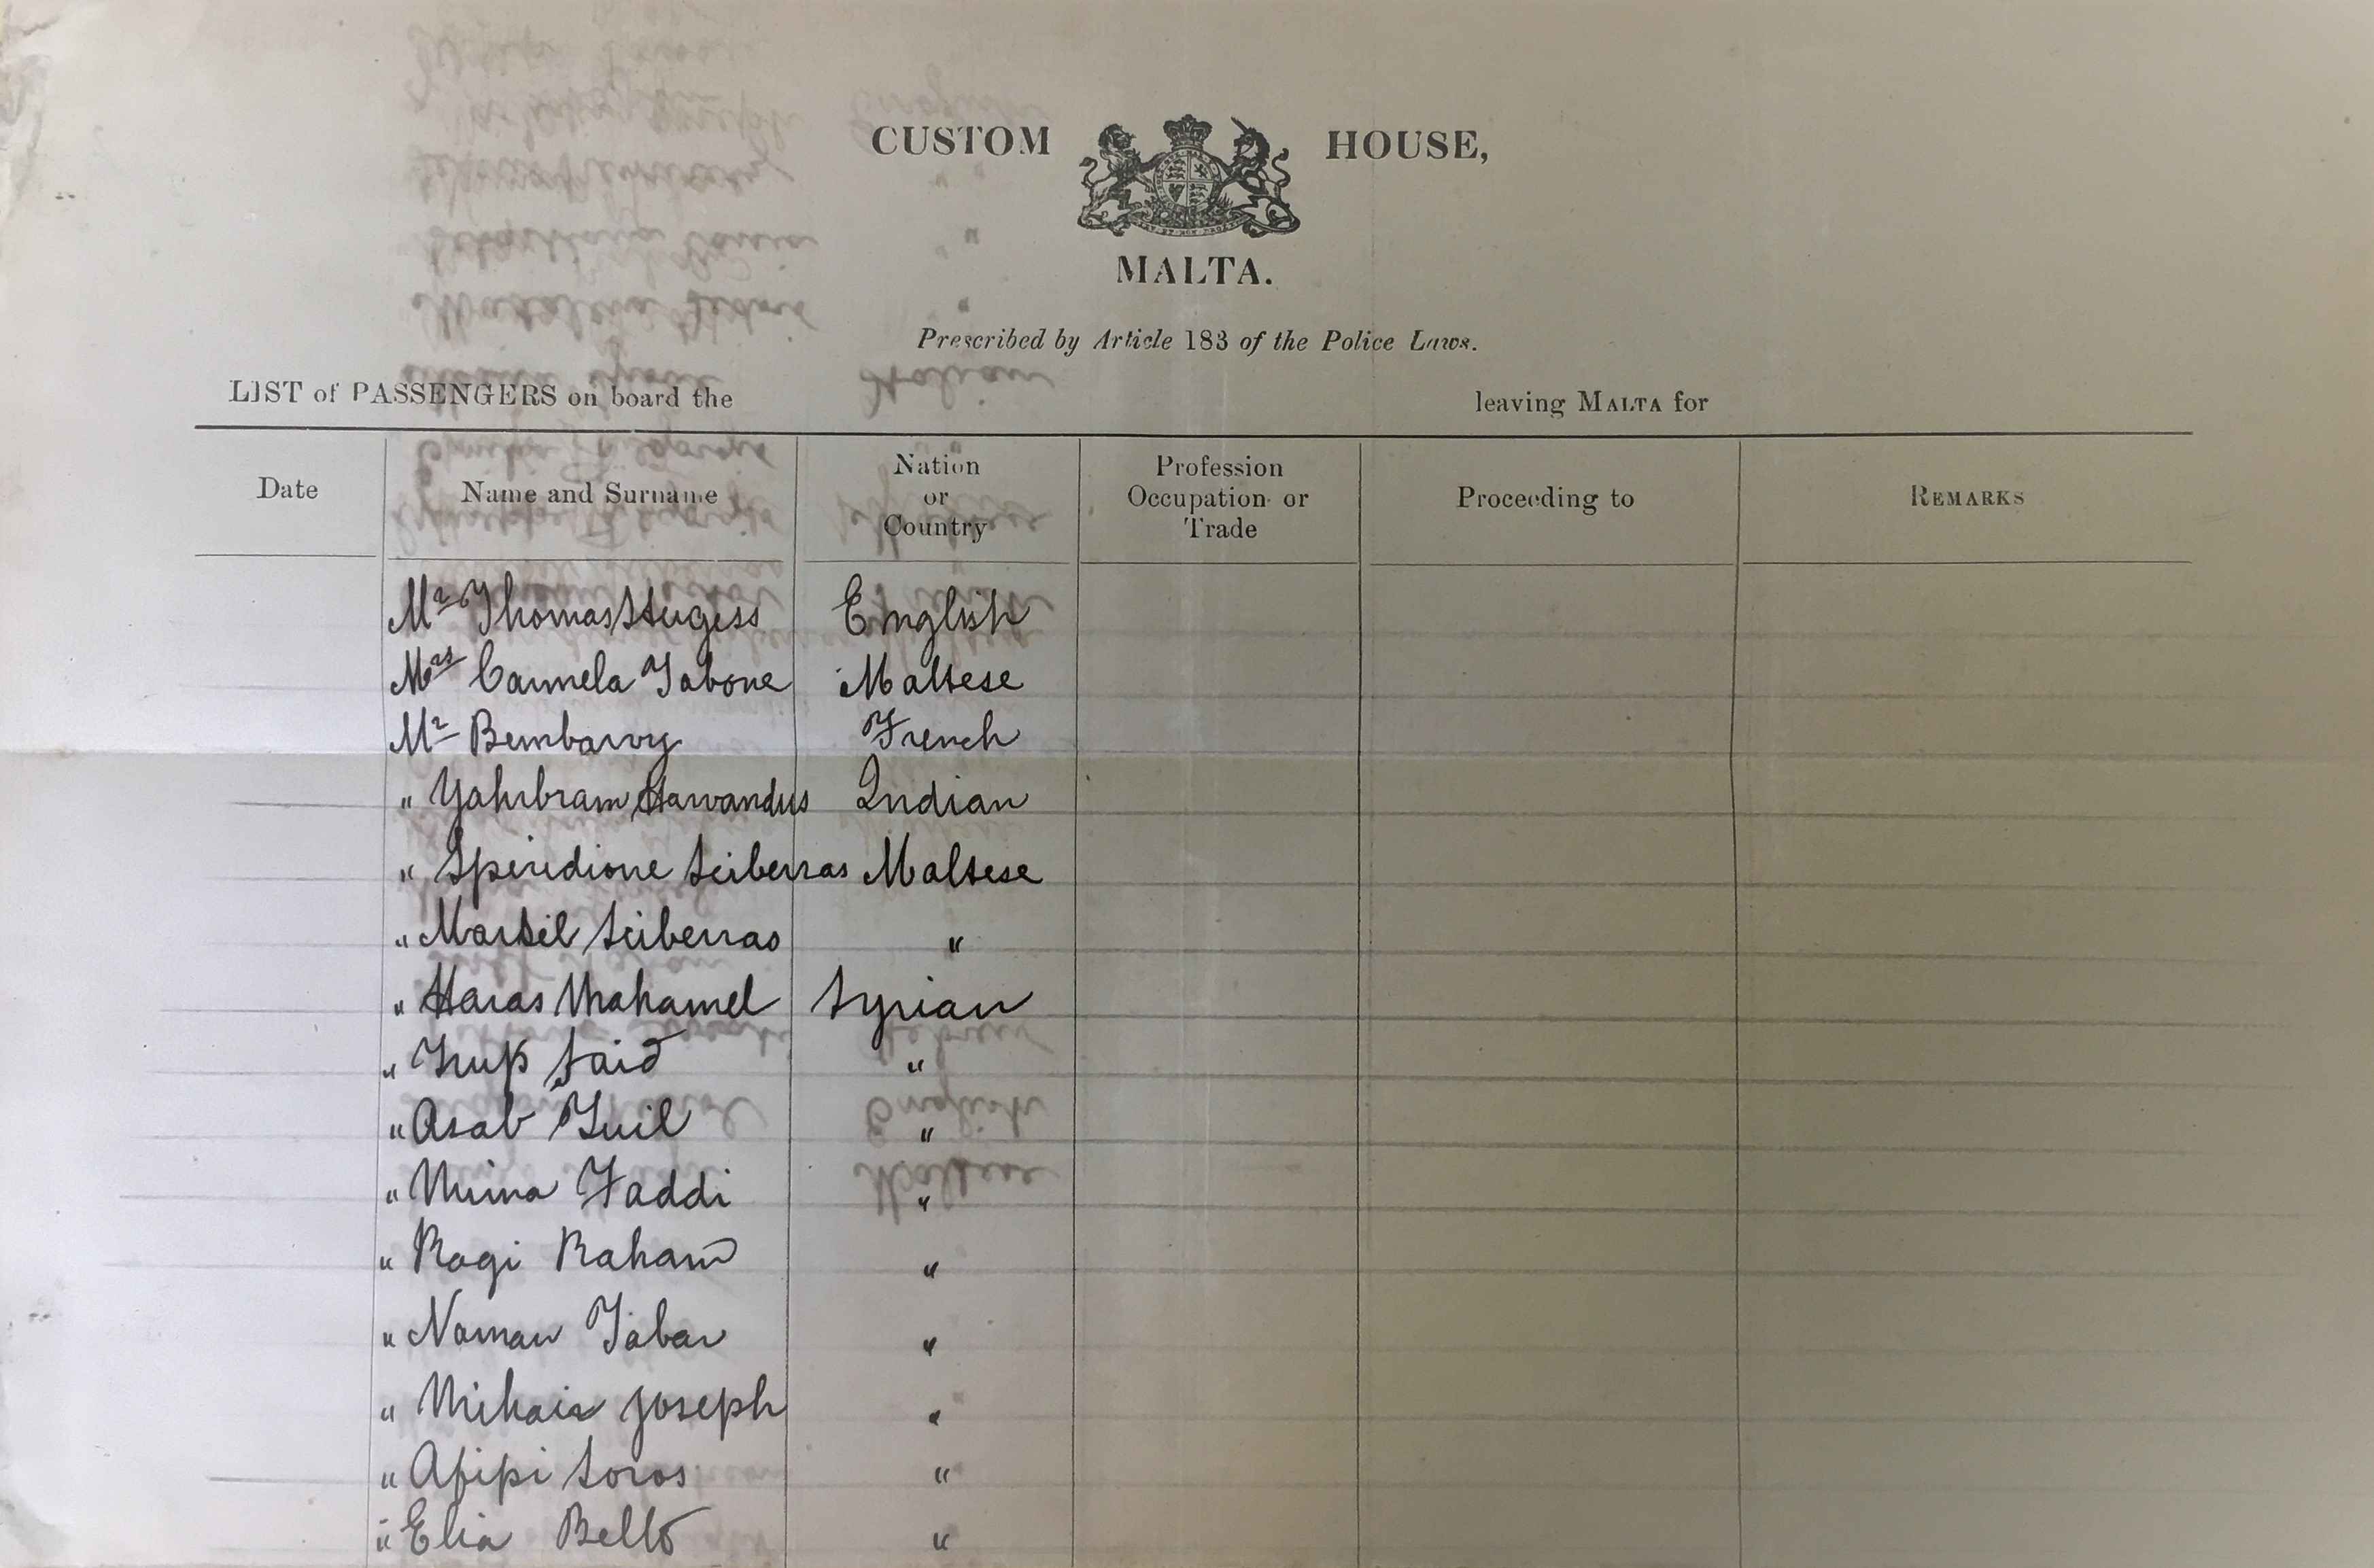 CUSTOM HOUSE,
MALTA.
Prescribed by Article 183 of the Police Laws.
LIST of PASSENGERS on board the leaving MALTA for
Date Name and Surname Nation or Country Profession Occupation or Trade Proceeding to REMARKS
Mr Thomas Hugess English
Mrs Carmela Tabone Maltese
Mr French
" Indian
" Spiridione Sciberras Maltese
" Sciberras "
" Haras Mahamel Syrian
" Said "
" Asab "
" Mina Faddi "
" Ragi Raham "
" Naman Jabar "
" Joseph "
" Afifi Soros "
" Elia Bello "